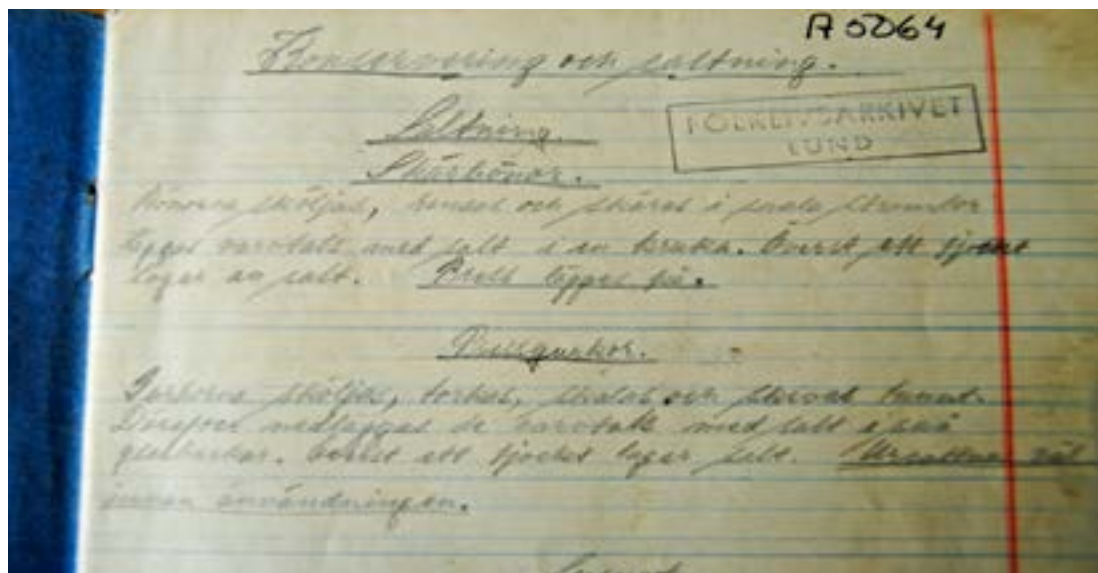 A 5064
Konservering och saltning.
FOLKLIVSARKIVET
LUND
Saltning.
Skärbönor.
Bönorna sköljas, rensas och skäras i sneda strimlor
lägges varvtals med salt i en kruka. Överst ett tjockt
lager av salt. Press lägges på.
Pressgurkor.
Gurkorna sköljas, torkas, skalas och skivas tunnt.
Därefter nedläggas de varvtals med salt i små
glasburkar. Överst ett tjockt lager salt. Urvattnas väl
innan användningen.